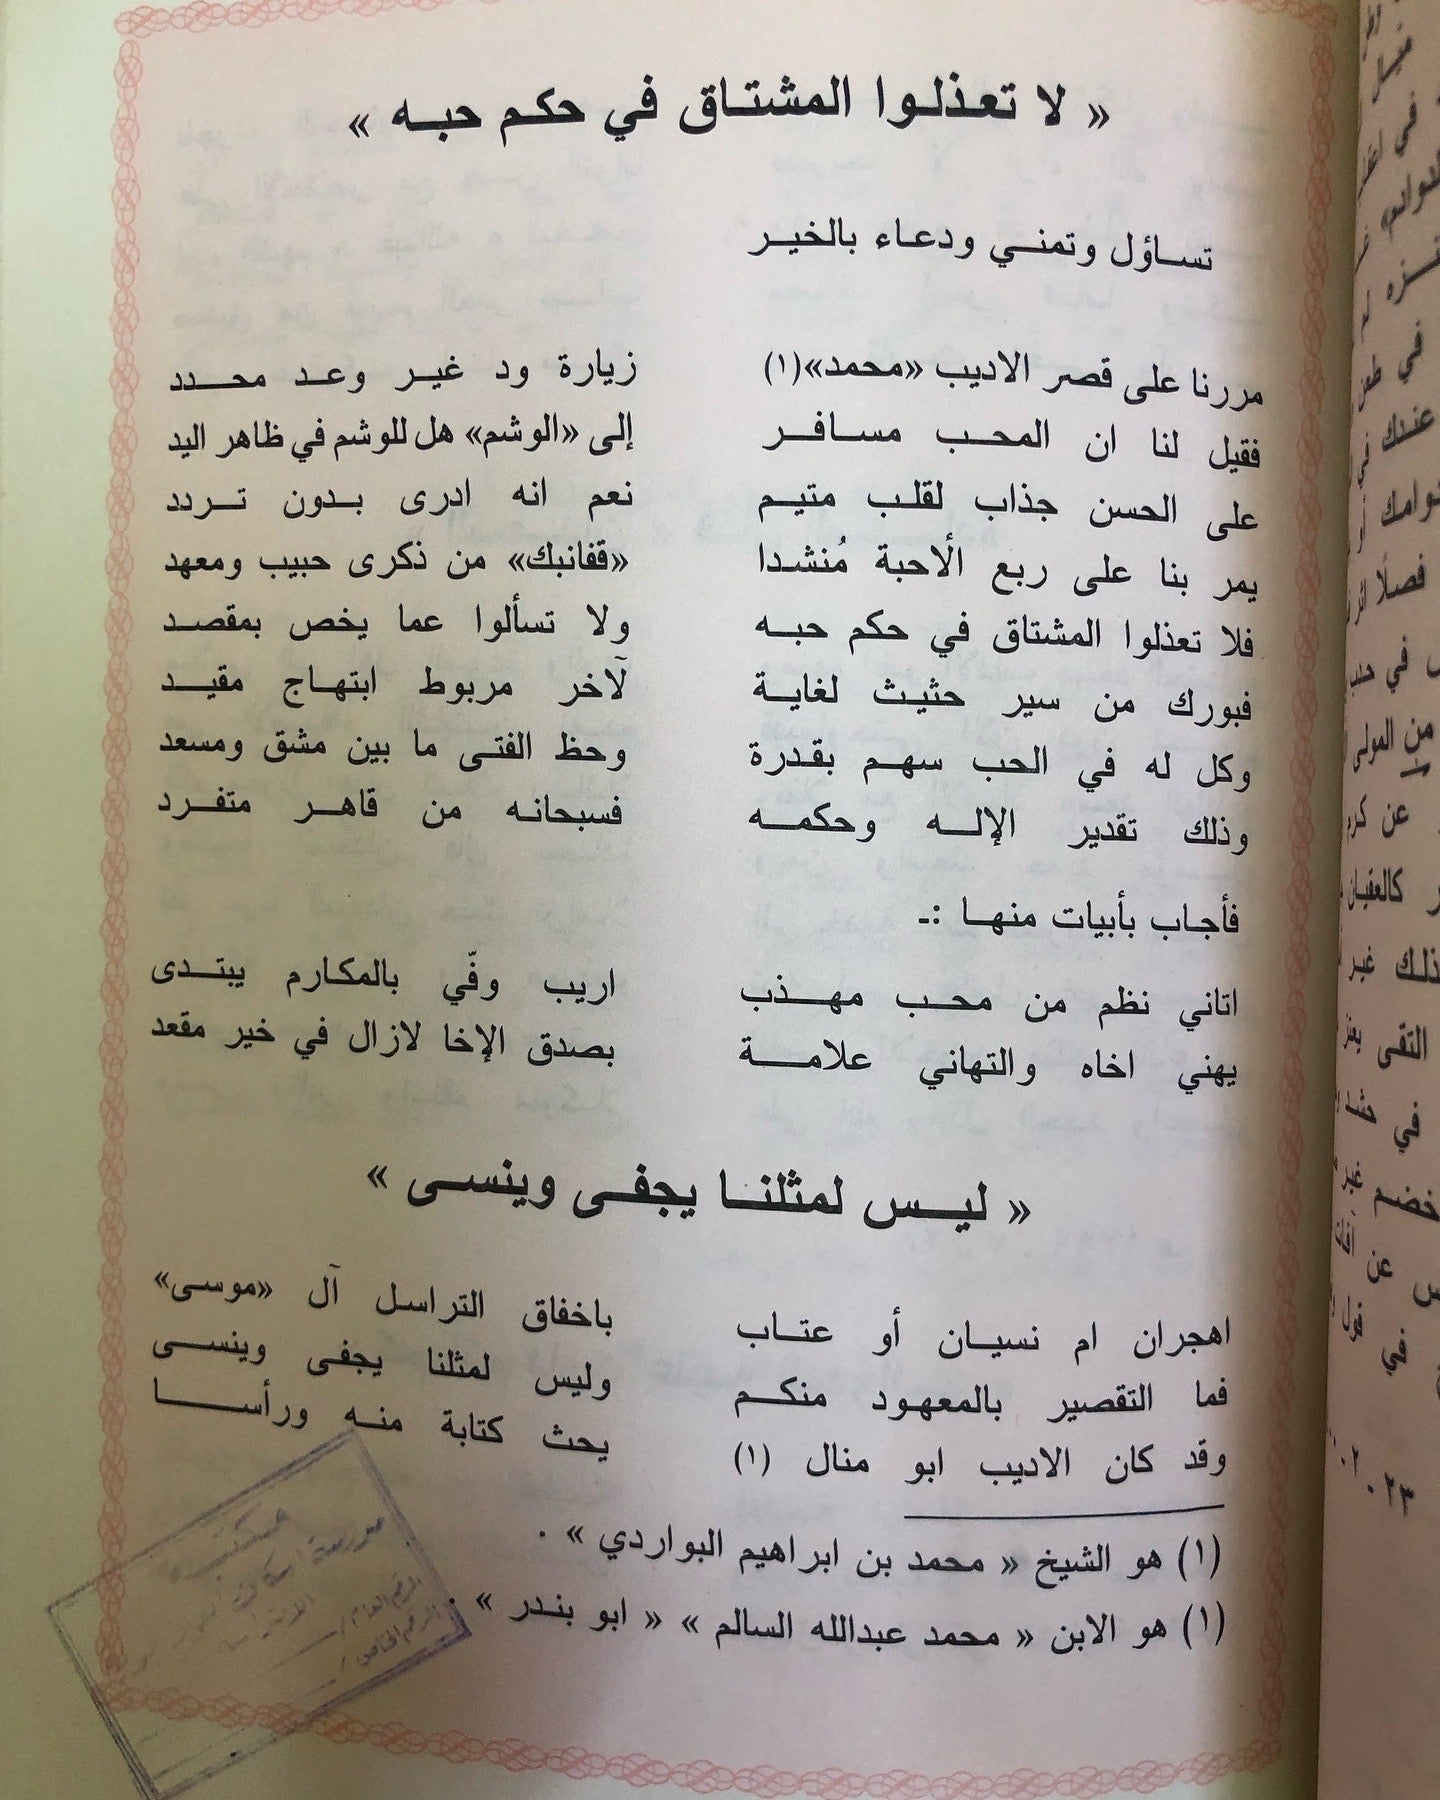 « لا تعذلوا المشتاق في حكم حبه »
تساؤل وتمني ودعاء بالخير
مررنا على قصر الاديب «محمد»(١) زيارة ود غير وعد محدد
فقيل لنا ان المحب مسافر إلى «الوشم» هل للوشم في ظاهر اليد
على الحسن جذاب لقلب متيم نعم انه ادرى بدون تردد
يمر بنا على ربع الأحبة مُنشدا «قفانبك» من ذكرى حبيب ومعهد
فلا تعذلوا المشتاق في حكم حبه ولا تسألوا عما يخص بمقصد
فبورك من سير حثيث لغاية لآخر مربوط ابتهاج مقيد
وكل له في الحب سهم بقدرة وحظ الفتى ما بين مشق ومسعد
وذلك تقدير الإله وحكمه فسبحانه من قاهر متفرد
فأجاب بأبيات منها :ـ
اتاني نظم من محب مهذب اريب وفّي بالمكارم يبتدى
يهني اخاه والتهاني علامة بصدق الإخا لازال في خير مقعد
« ليس لمثلنا يجفى وينسى »
اهجران ام نسيان أو عتاب باخفاق التراسل آل «موسى»
فما التقصير بالمعهود منكم وليس لمثلنا يجفى وينسى
وقد كان الاديب ابو منال (١) يحث كتابة منه ورأسا
(١) هو الشيخ « محمد بن ابراهيم البواردي » .
(١) هو الابن « محمد عبدالله السالم » « ابو بندر » .
الرقم العام /
الرقم الخاص /